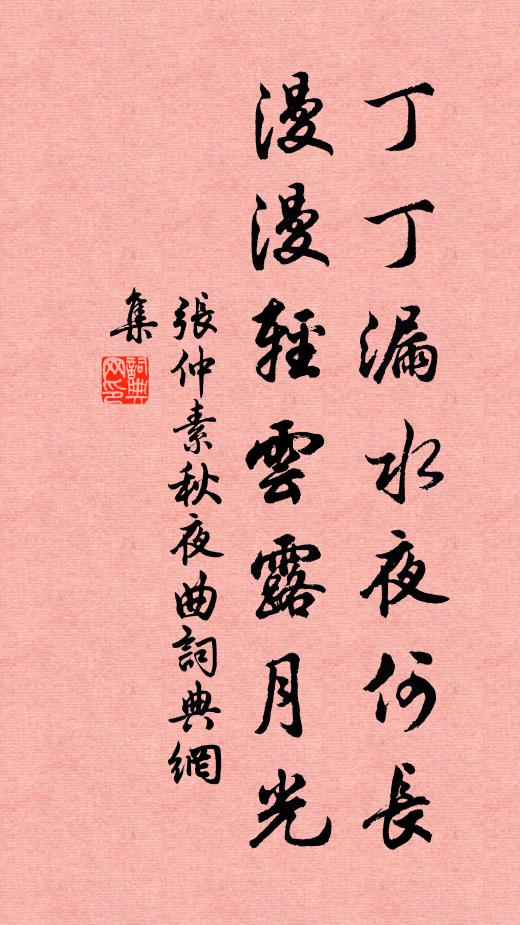 丁丁漏水夜何長
漫漫輕雲露月光
張仲素秋夜曲詞典網
集
詞典網印